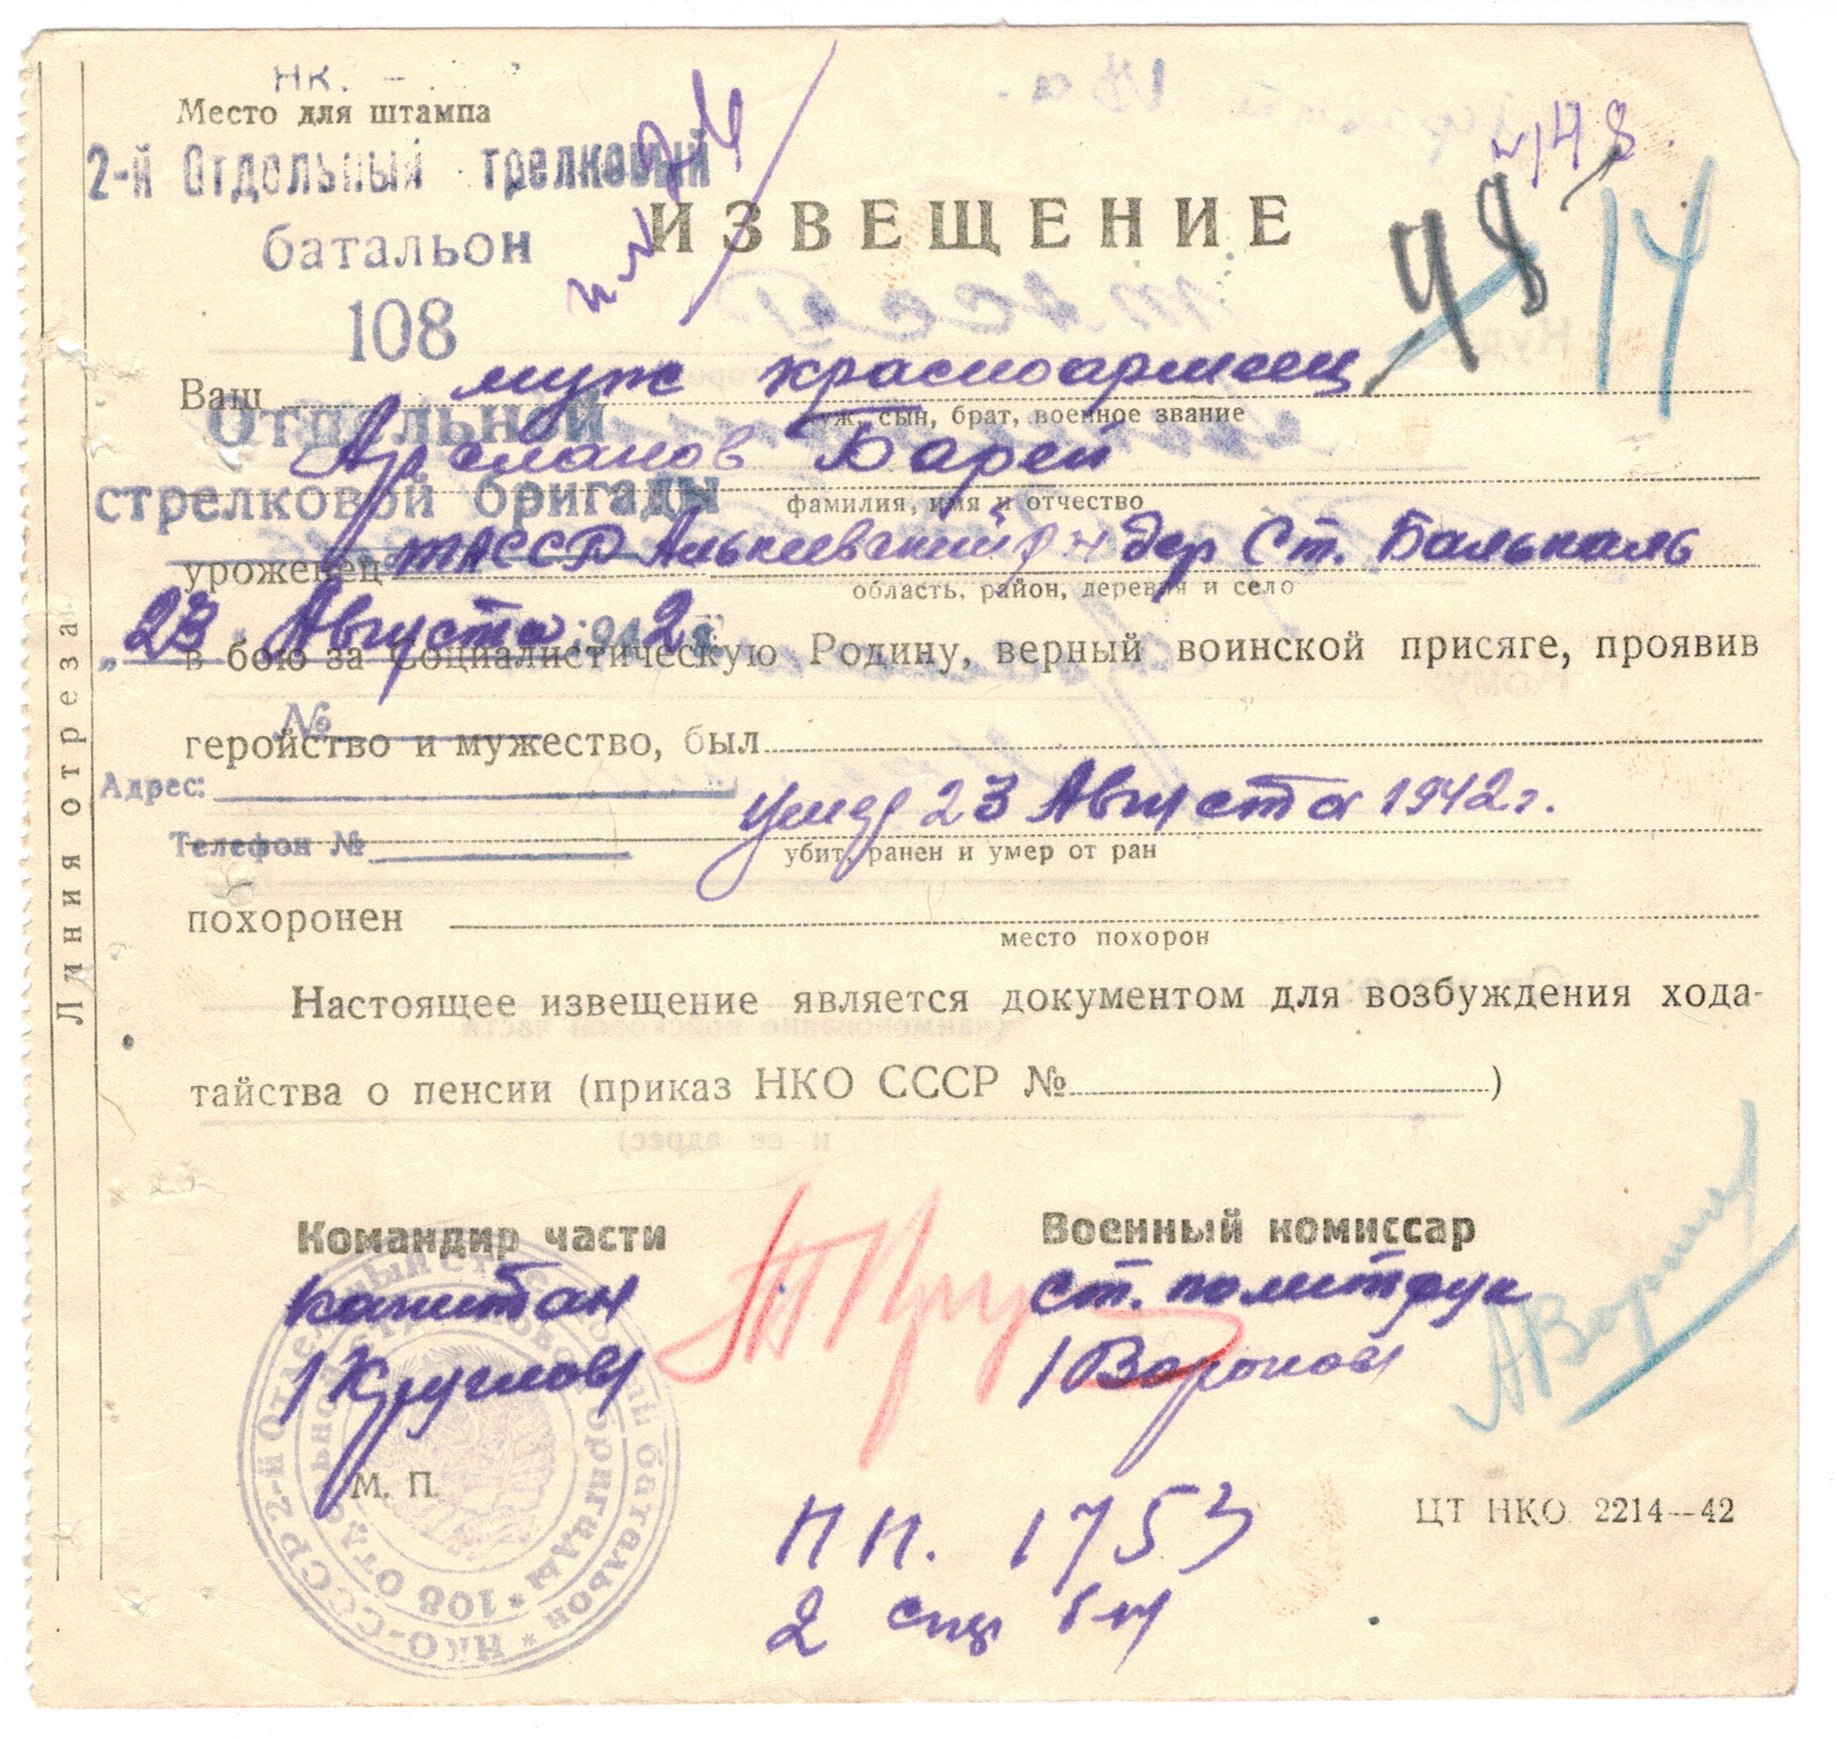 НК.
Место для штампа
2-й Отдельный трелковый
батальон
108
Отдельной
стрелковой бригады
"23 Августа 1942 г.
№
Адрес:
Телефон №
Линия отреза
№ 148.
48
14
ИЗВЕЩЕНИЕ
Ваш муж красноармеец
муж, сын, брат, военное звание
Арсланов Барей
фамилия, имя и отчество
уроженец ТАССР Алькеевский р-н дер Ст. Балькаль
область, район, деревня и село
в бою за Социалистическую Родину, верный воинской присяге, проявив
геройство и мужество, был
умер 23 Августа 1942 г.
убит, ранен и умер от ран
похоронен
место похорон
Настоящее извещение является документом для возбуждения хода-
тайства о пенсии (приказ НКО СССР № )
Командир части Военный комиссар
капитан ст. политрук
/Круглов/ /Воронов/
М. П.
НКО-СССР 2-й Отдельный стрелковый батальон * 108 отдельной стрелковой бригады *
п п. 1753
2 стр б-н
ЦТ НКО 2214—42